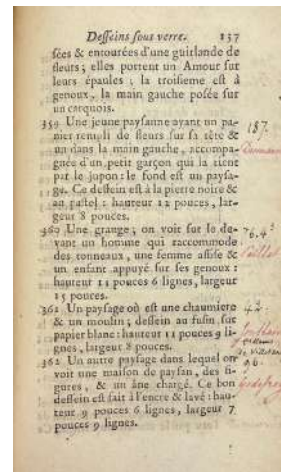 Desseins sous verre. 137
sées & entourées d'une guirlande de
fleurs ; elles portent un Amour sur
leurs épaules ; la troisieme est à
genoux, la main gauche posée sur
un carquois.
359 Une jeune paysanne ayant un pa-
nier rempli de fleurs sur sa tête &
un dans la main gauche, accompa-
gnée d'un petit garçon qui la tient
par le jupon : le fond est un paysa-
ge. Ce dessein est à la pierre noire &
au pastel : hauteur 12 pouces, lar-
geur 8 pouces.
187.
360 Une grange ; on voit sur le de-
vant un homme qui raccommode
des tonneaux, une femme assise &
un enfant appuyé sur ses genoux :
hauteur 11 pouces 6 lignes, largeur
15 pouces.
76.4
361 Un paysage où est une chaumiere
& un moulin ; dessein au fusin sur
papier blanc : hauteur 11 pouces 9 li-
gnes, largeur 8 pouces.
362 Un autre paysage dans lequel on
voit une maison de paysan, des fi-
gures, & un âne chargé. Ce bon
dessein est fait à l'encre & lavé : hau-
teur 9 pouces 6 lignes, largeur 7
pouces 9 lignes.